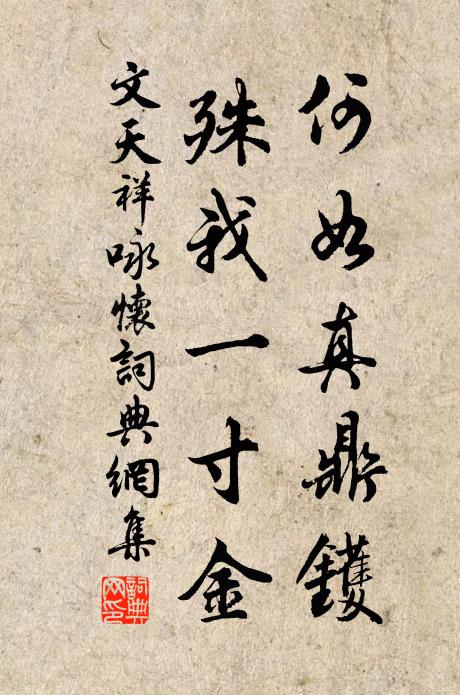 何如真鼎鑊
殊我一寸金
文天祥咏懷詞典網集
詞典
网印